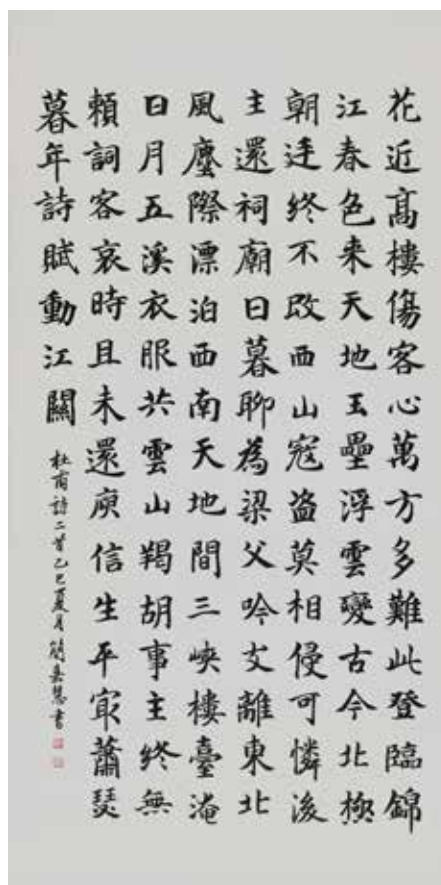 花近髙樓傷客心萬方多難此登臨錦
江春色来天地玉壘浮雲變古今北極
朝廷終不改西山寇盗莫相侵可憐後
主還祠廟日暮聊為梁父吟支離東北
風塵際漂泊西南天地間三峽樓臺淹
日月五溪衣服共雲山羯胡事主終無
賴詞客哀時且未還庾信生平㝡蕭瑟
暮年詩賦動江關
杜甫詩二首乙巳夏月簡嘉慧書